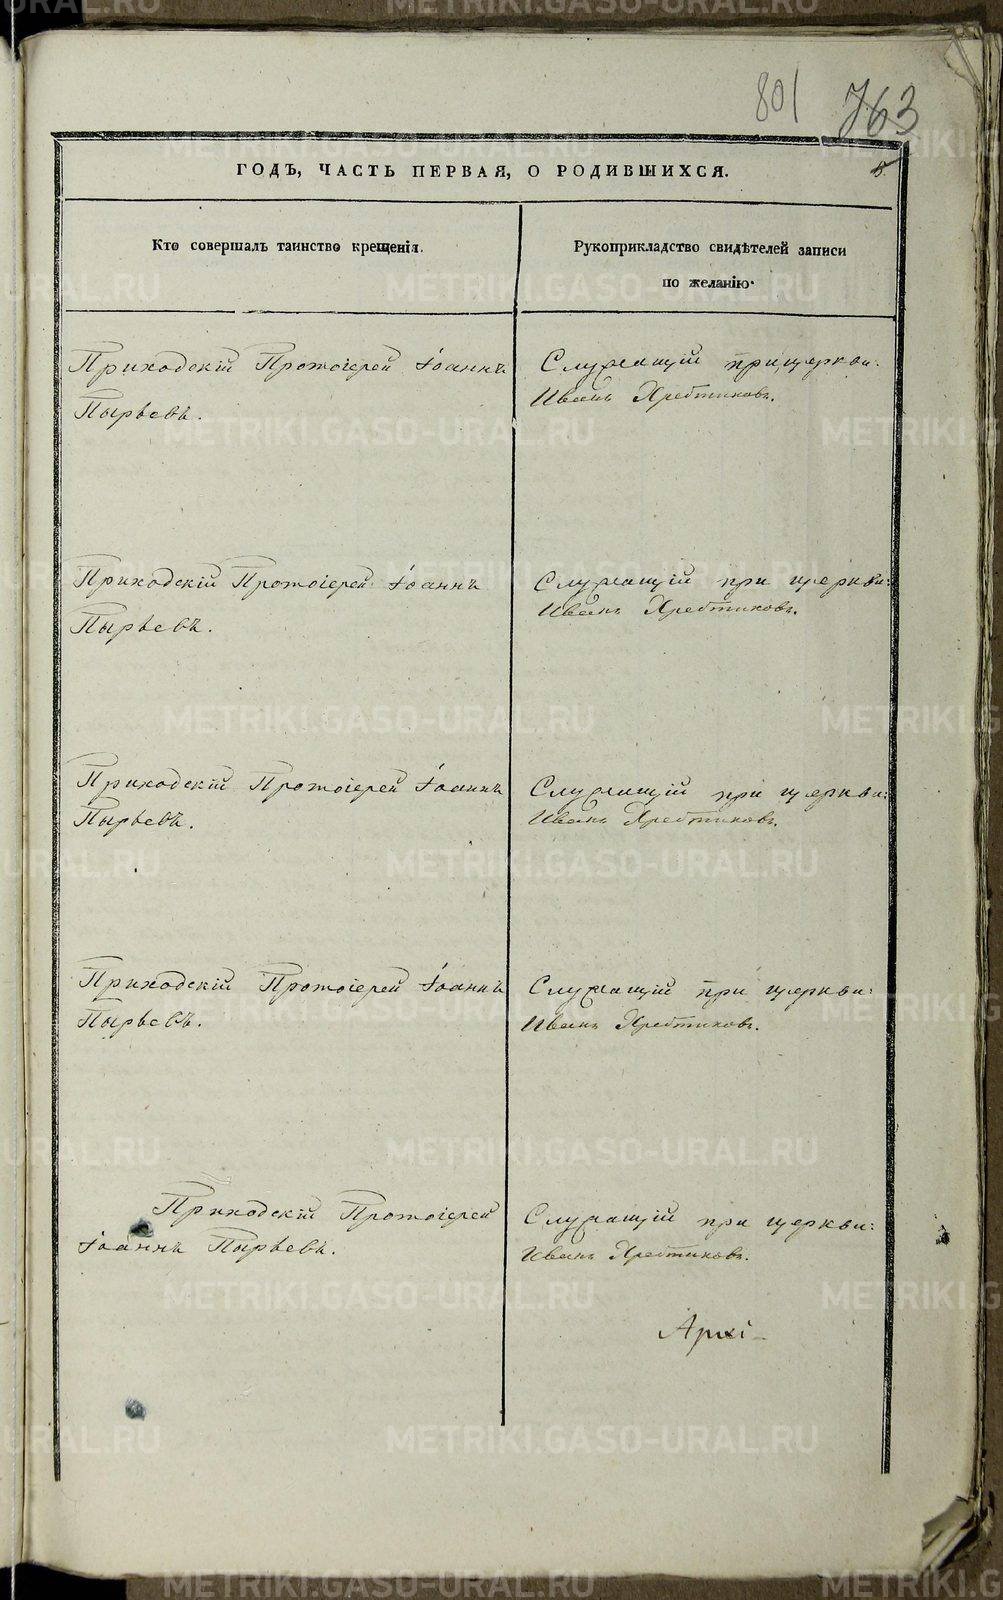 801 763
ГОДЪ, ЧАСТЬ ПЕРВАЯ, О РОДИВШИХСЯ.
Кто совершалъ таинство крещенія.
Рукоприкладство свидѣтелей записи
по желанію.
Приходскій Протоіерей Іоаннъ
Пырьевъ.
Служащій при церкви:
Иванъ Хребтиковъ.
Приходскій Протоіерей Іоаннъ
Пырьевъ.
Служащій при церкви:
Иванъ Хребтиковъ.
Приходскій Протоіерей Іоаннъ
Пырьевъ.
Служащій при церкви:
Иванъ Хребтиковъ.
Приходскій Протоіерей Іоаннъ
Пырьевъ.
Служащій при церкви:
Иванъ Хребтиковъ.
Приходскій Протоіерей
Іоаннъ Пырьевъ.
Служащій при церкви:
Иванъ Хребтиковъ.
Архі-
METRIKI.GASO-URAL.RU